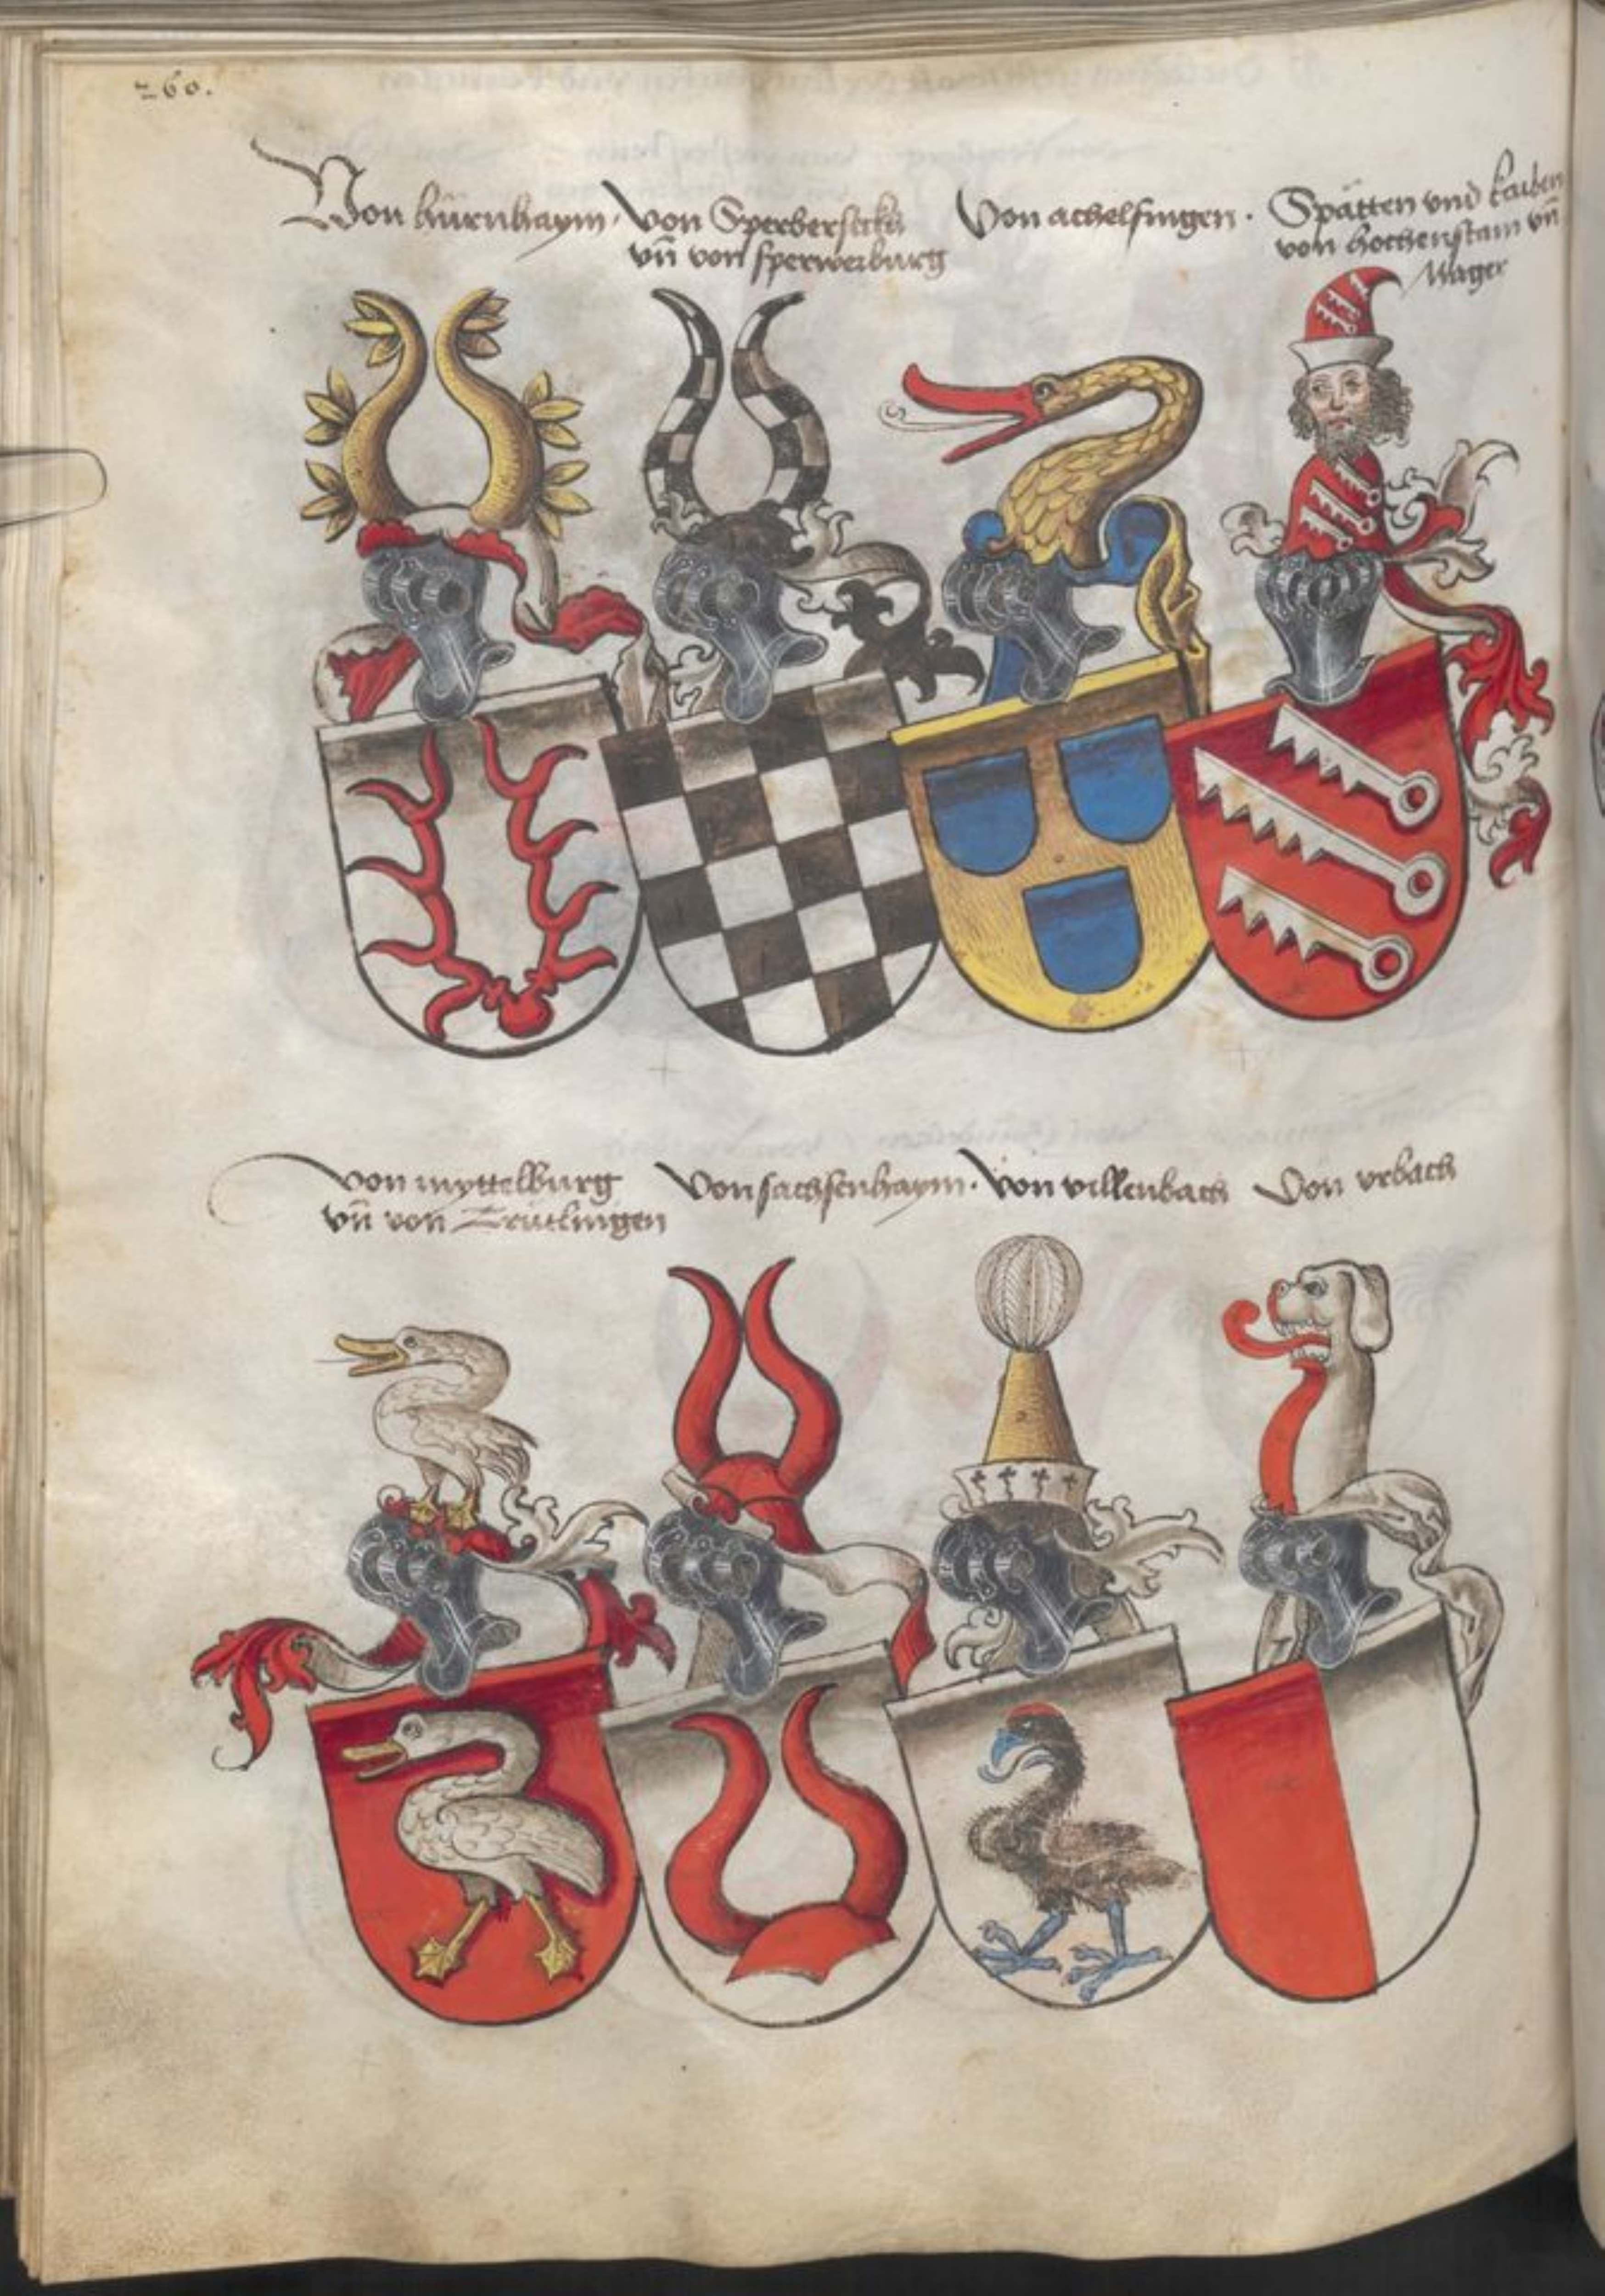 260.
Von hürnhaym.
von Sperberseckh
vn̄ von sperwerburg
Von achelfingen.
Spätten vnd
von hochenstain vn̄
Mager
von myttelburg
vn̄ von Trütlingen
Von sachsenhaym.
Von villenbach
Von vrbach